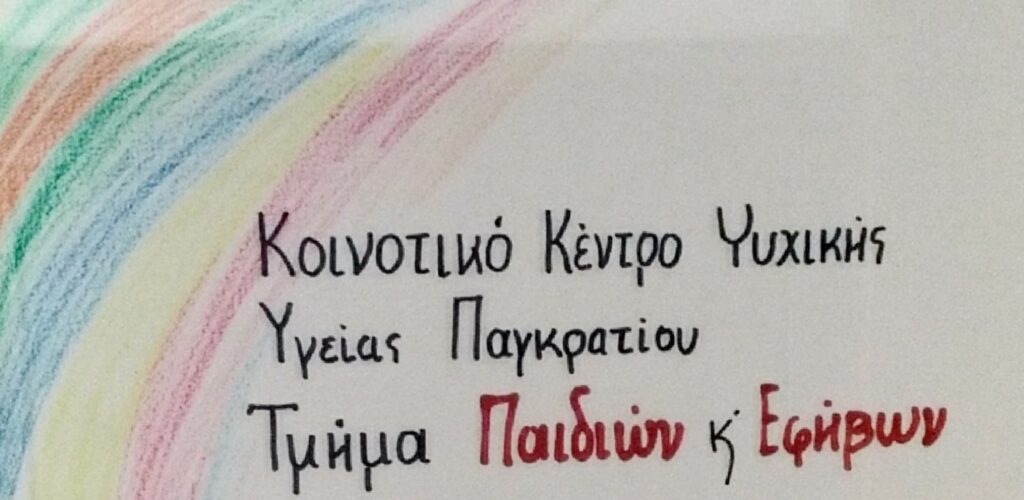 Κοινοτικό Κέντρο Ψυχικής
Υγείας Παγκρατίου
Τμήμα Παιδιών κ' Εφήβων